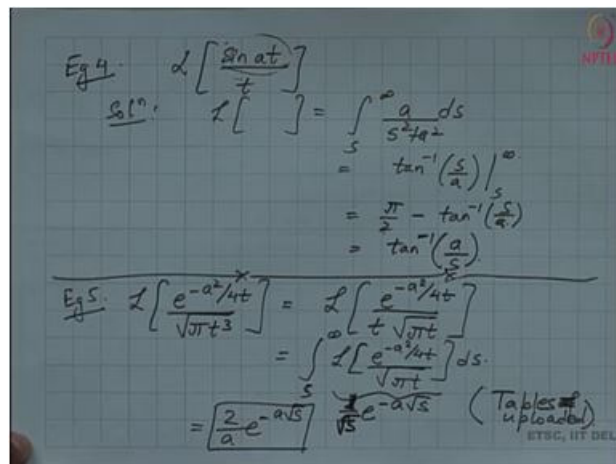 NPTEL
Eg 4. L[sin at / t]
Solⁿ: L[ ] = ∫_s^∞ a/(s²+a²) ds
= tan⁻¹(s/a) |_s^∞
= π/2 - tan⁻¹(s/a)
= tan⁻¹(a/s).
Eg 5. L[e^(-a²/4t) / √(πt³)] = L[e^(-a²/4t) / (t √(πt))]
= ∫_s^∞ L[e^(-a²/4t) / √(πt)] ds.
= 2/a e^(-a√s) 1/√s e^(-a√s) (Tables uploaded)
ETSC, IIT DEL